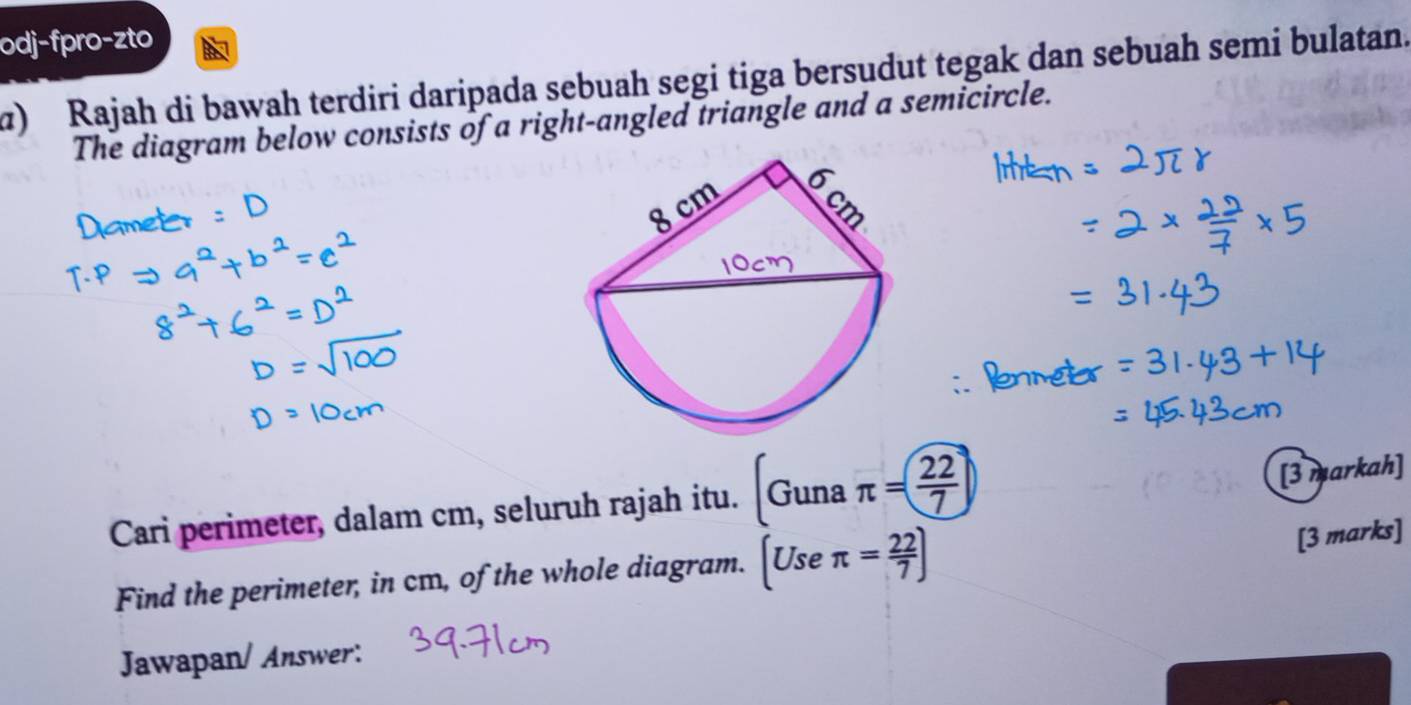 odj-fpro-zto
a) Rajah di bawah terdiri daripada sebuah segi tiga bersudut tegak dan sebuah semi bulatan.
The diagram below consists of a right-angled triangle and a semicircle.
Diameter = D
T.P ⇒ a² + b² = c²
8² + 6² = D²
D = √100
D = 10cm
8 cm
6 cm
10cm
= 2πr
= 2 × 22/7 × 5
= 31.43
∴ Perimeter = 31.43 + 14
= 45.43cm
Cari perimeter, dalam cm, seluruh rajah itu. [Guna π = 22/7]
[3 markah]
Find the perimeter, in cm, of the whole diagram. [Use π = 22/7]
[3 marks]
Jawapan/ Answer: 39.71cm